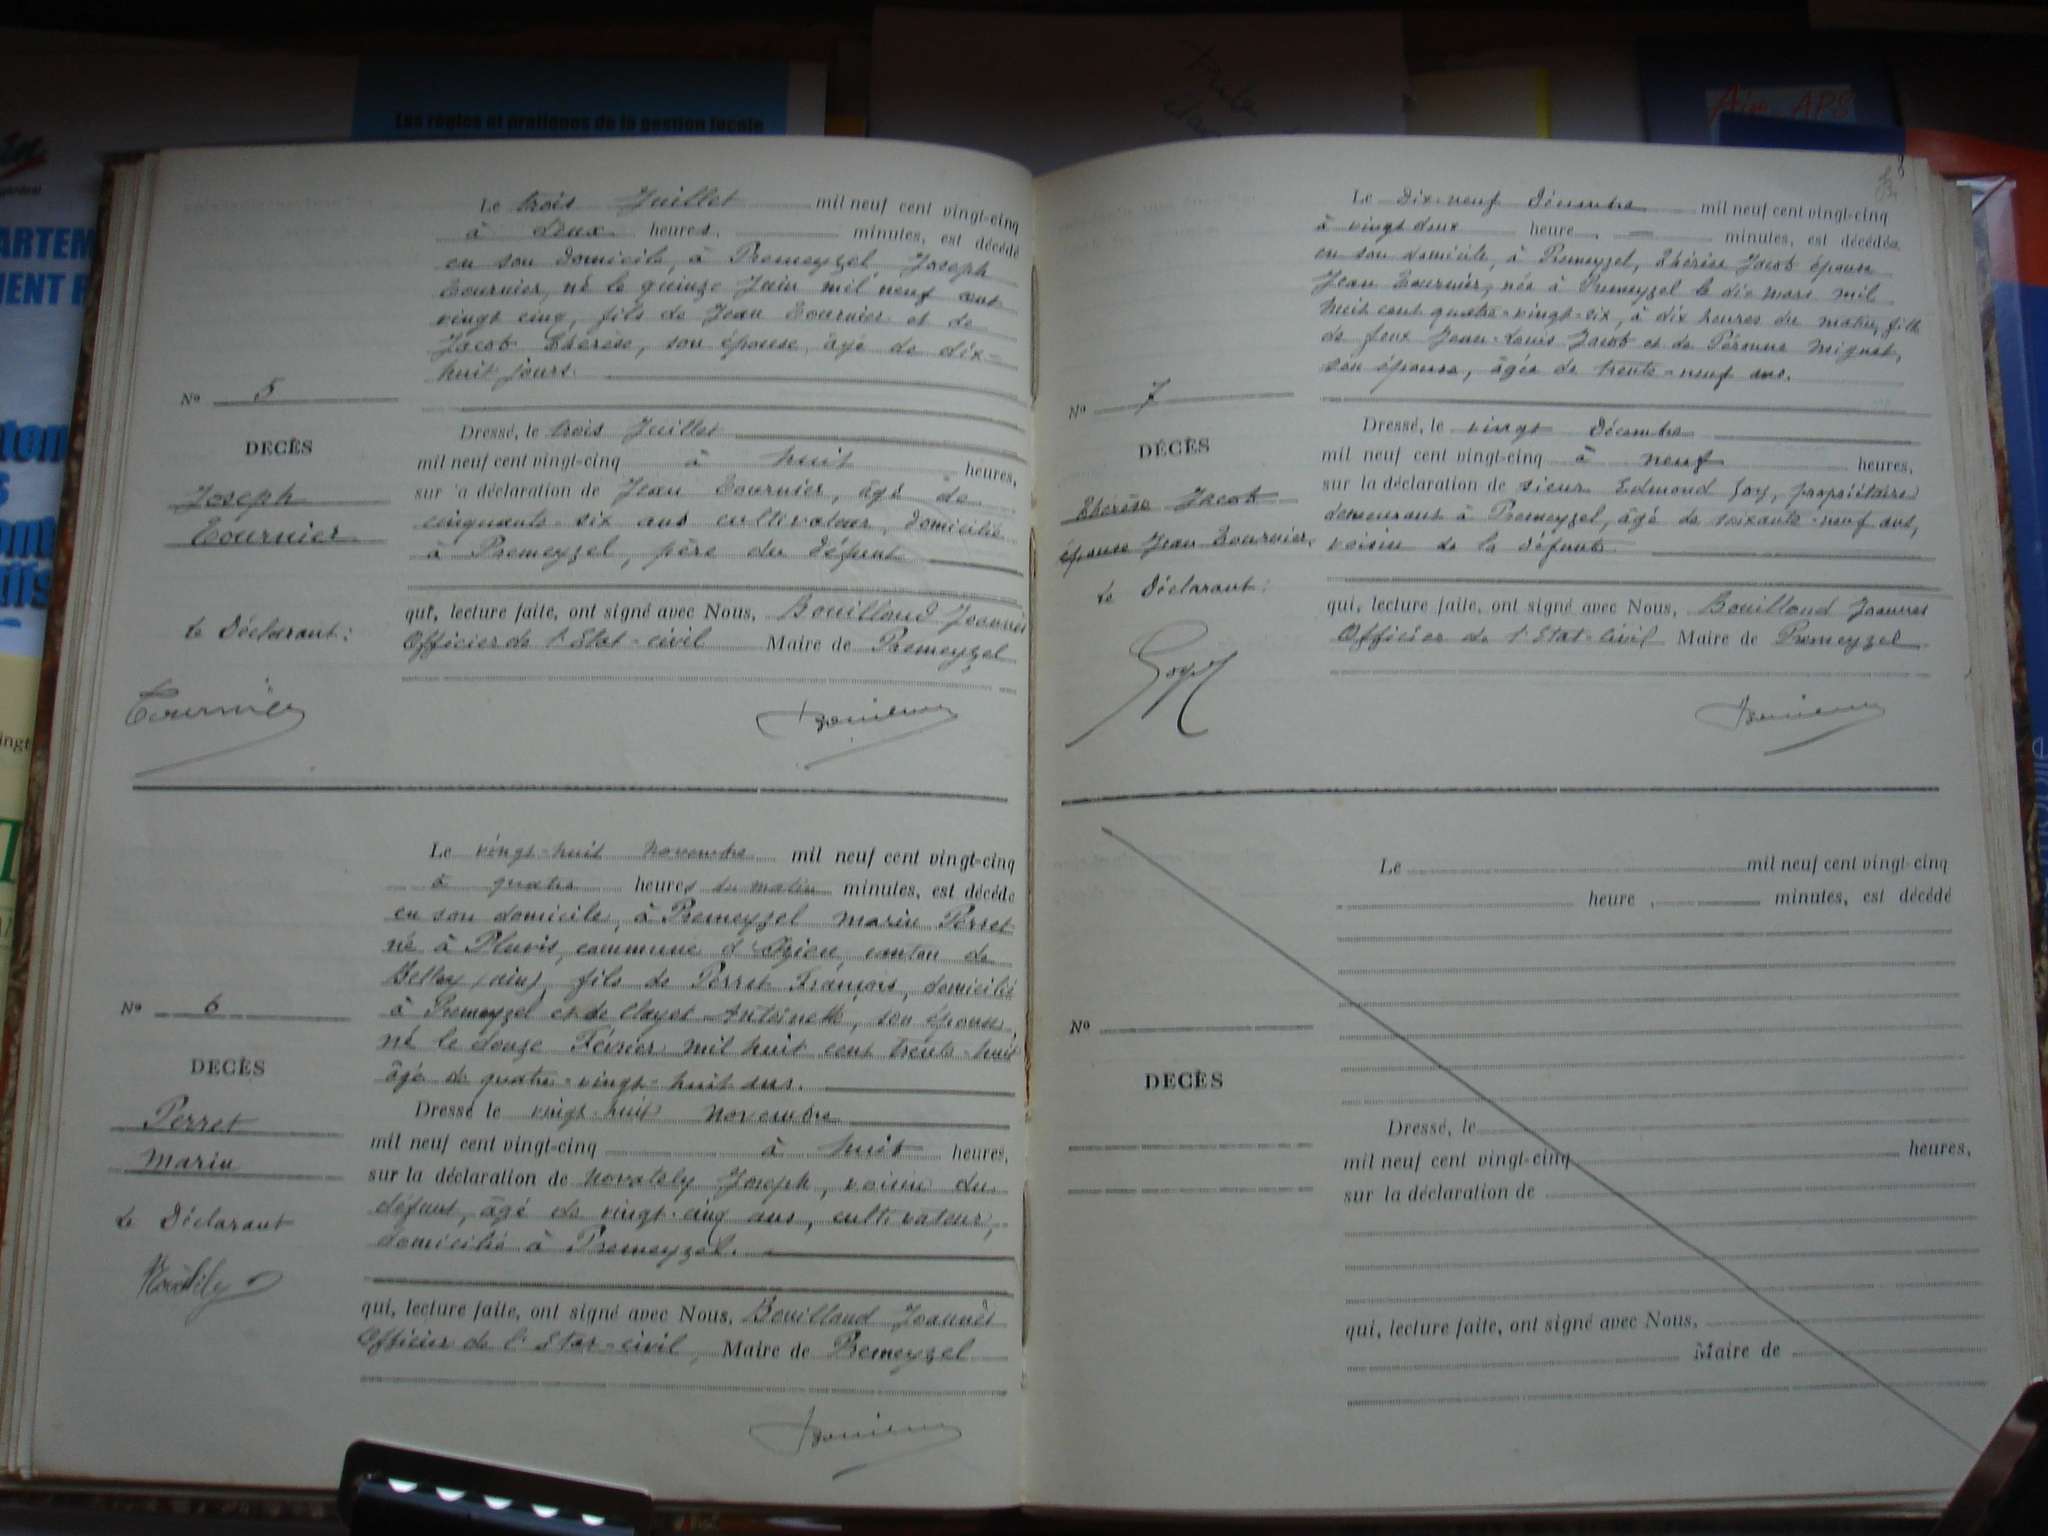 Les règles et pratiques de la gestion locale
Le trois Juillet mil neuf cent vingt-cinq
à deux heures, minutes, est décédé
en son domicile, à Premeyzel, Joseph
Tournier, né le quinze Juin mil neuf cent
vingt cinq, fils de Jean Tournier et de
Jacob Thérèse, son épouse, âgé de dix-
huit jours.
No 5
DECÈS
Joseph
Tournier
Dressé, le trois Juillet
mil neuf cent vingt-cinq à huit heures,
sur la déclaration de Jean Tournier, âgé de
cinquante-six ans cultivateur, domicilié
à Premeyzel, père du défunt
qui, lecture faite, ont signé avec Nous, Bouilloud Joannès
Officier de l'Etat-civil Maire de Premeyzel
Le Déclarant:
Tournier
Le vingt-huit novembre mil neuf cent vingt-cinq
à quatre heures du matin minutes, est décédé
en son domicile, à Premeyzel Marin Perret
né à Pluvis, commune d'Izieu, canton de
Belley (ain), fils de Perret François, domicilié
à Premeyzel et de Clayet Antoinette, son épouse,
né le douze Février mil huit cent trente-huit
âgé de quatre-vingt-huit ans.
No 6
DECÈS
Perret
Marin
Dressé le vingt-huit novembre
mil neuf cent vingt-cinq à huit heures,
sur la déclaration de Novately Joseph, voisin du
défunt, âgé de vingt-cinq ans, cultivateur,
domicilié à Premeyzel.
Le Déclarant
qui, lecture faite, ont signé avec Nous, Bouilloud Joannès
Officier de l'Etat-civil, Maire de Premeyzel
Le dix-neuf décembre mil neuf cent vingt-cinq
à vingt deux heure, minutes, est décédée
en son domicile, à Premeyzel, Thérèse Jacob épouse
Jean Tournier, née à Premeyzel le dix mars mil
huit cent quatre-vingt-six, à dix heures du matin, fille
de feux Jean-Louis Jacob et de Péronne Mignot,
son épouse, âgée de trente-neuf ans.
No 7
DÉCÈS
Thérèse Jacob
épouse Jean Tournier.
Dressé, le vingt décembre
mil neuf cent vingt-cinq à neuf heures,
sur la déclaration de sieur Edmond Goy, propriétaire
demeurant à Premeyzel, âgé de soixante-neuf ans,
voisin de la défunte
Le Déclarant:
qui, lecture faite, ont signé avec Nous, Bouilloud Joannès
Officier de l'Etat-civil Maire de Premeyzel
Goy
Le mil neuf cent vingt-cinq
heure, minutes, est décédé
No
DECÈS
Dressé, le
mil neuf cent vingt-cinq heures,
sur la déclaration de
qui, lecture faite, ont signé avec Nous,
Maire de